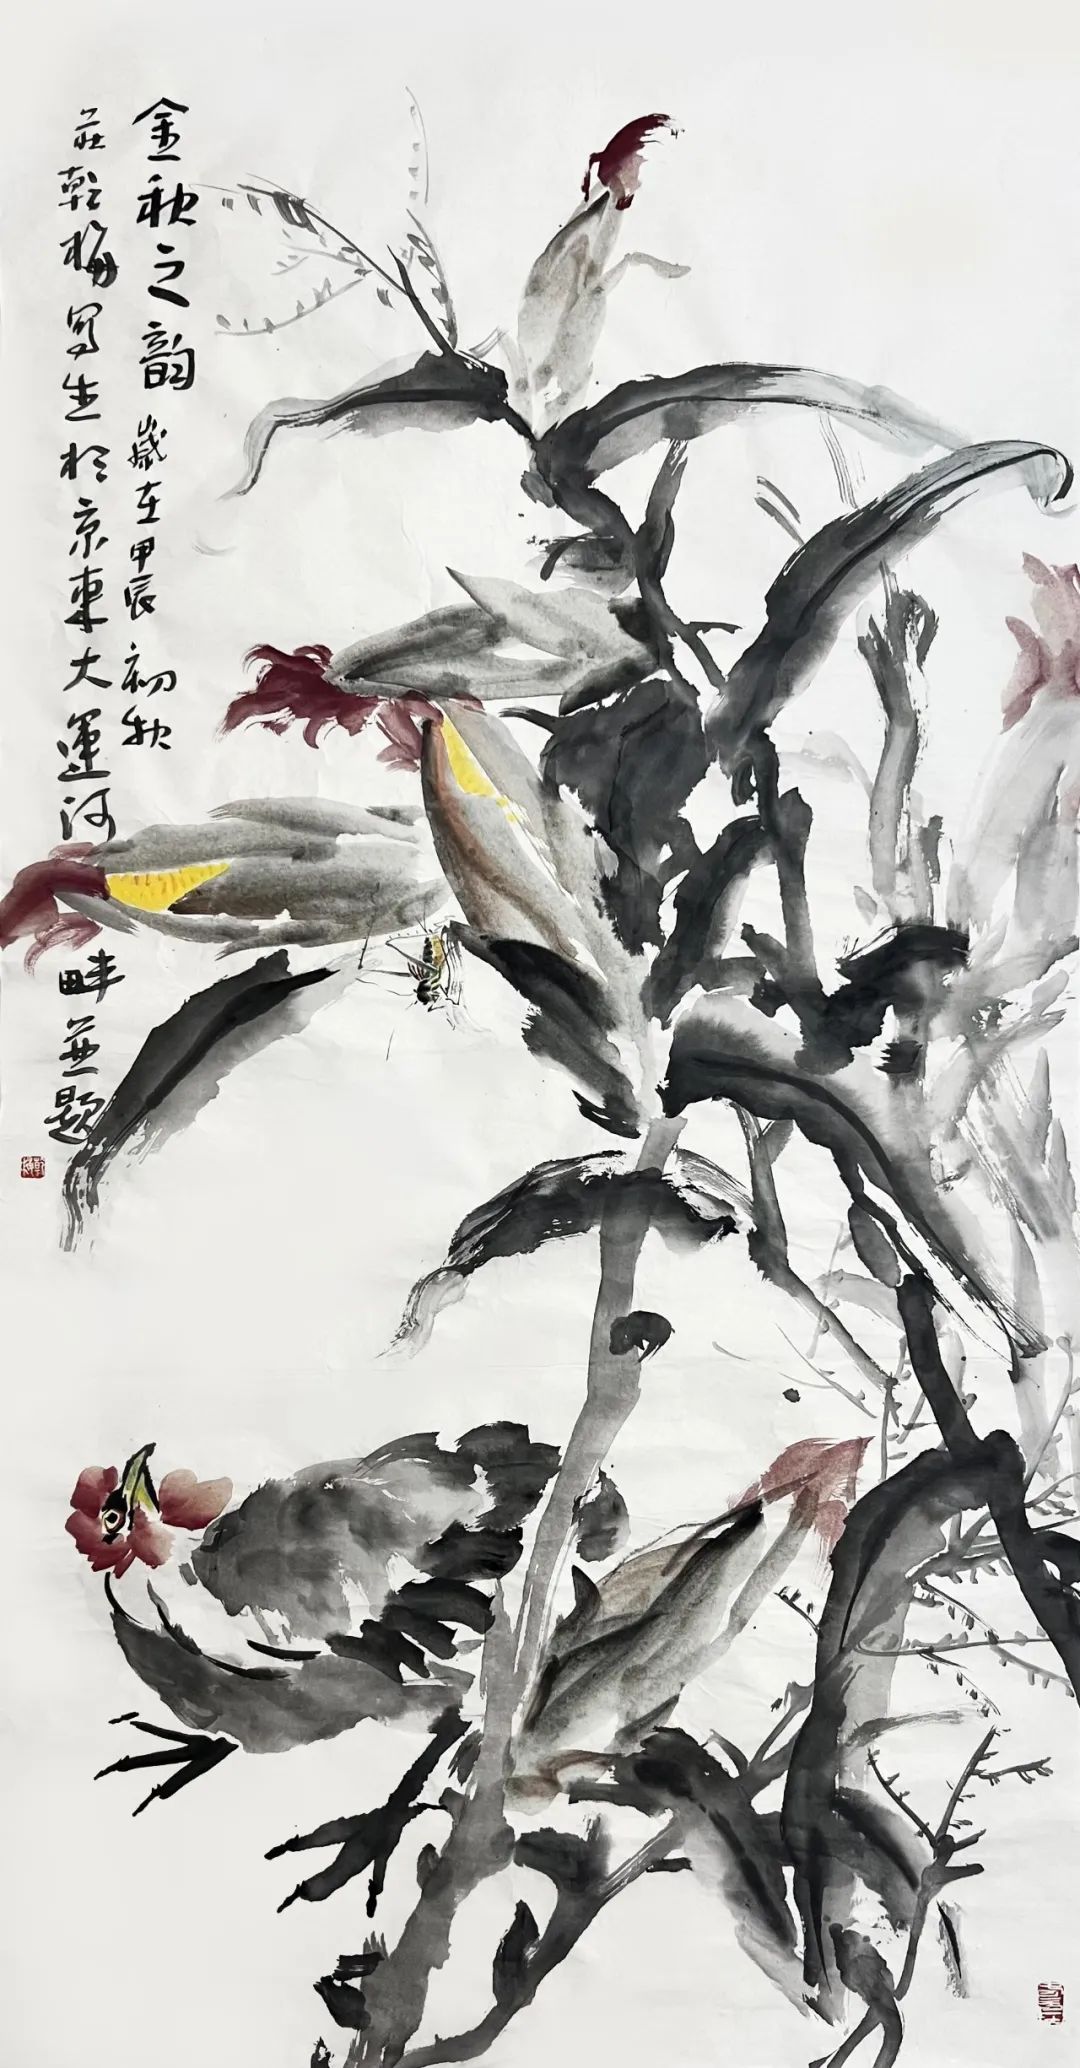 金秋之韵 歲在甲辰初秋
莊乾梅写生於京東大運河畔並题
乾梅